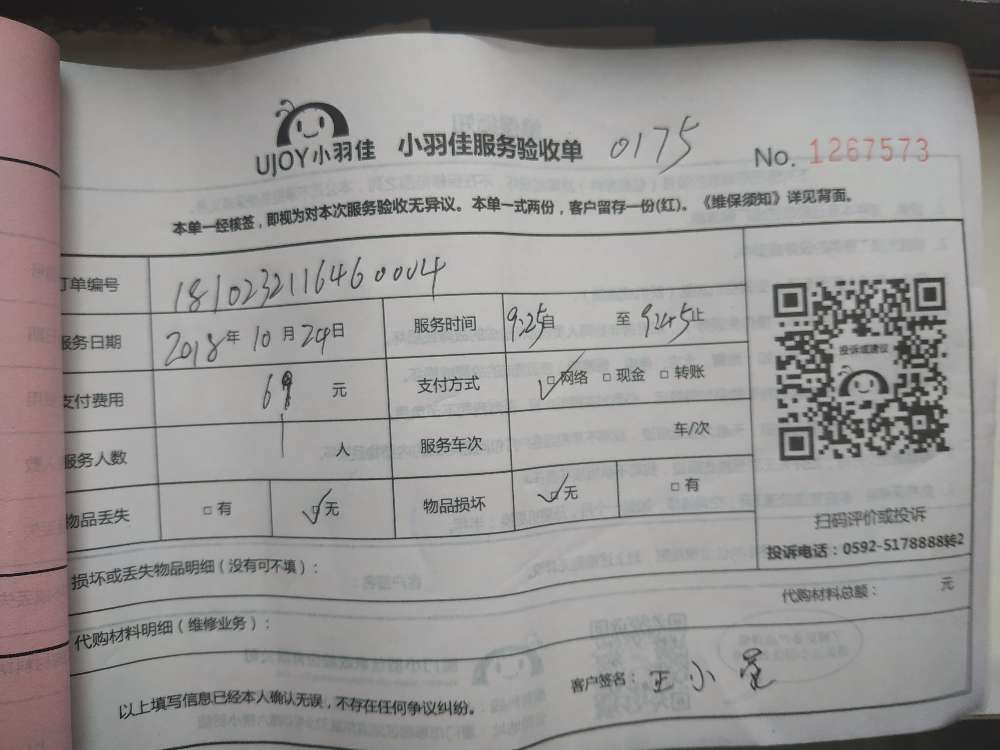 UJOY小羽佳 小羽佳服务验收单 0175 No. 1267573
本单一经核签，即视为对本次服务验收无异议。本单一式两份，客户留存一份(红)。《维保须知》详见背面。
订单编号 1810232116460004
服务日期 2018年10月24日 服务时间 9:25自 至 9:45止
支付费用 69 元 支付方式 □网络 □现金 □转账
服务人数 1 人 服务车次 车/次
物品丢失 □有 □无 物品损坏 □无 □有
投诉或建议
扫码评价或投诉
投诉电话：0592-5178888转2
损坏或丢失物品明细（没有可不填）：
代购材料明细（维修业务）： 代购材料总额： 元
以上填写信息已经本人确认无误，不存在任何争议纠纷。 客户签名： 王小星